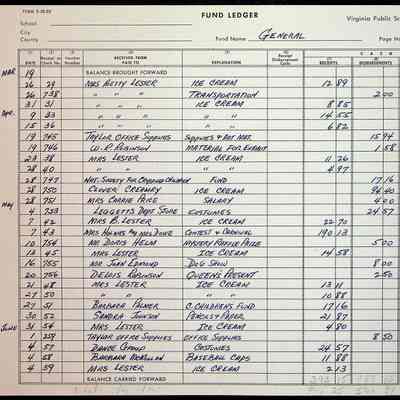 FORM S-20-52
FUND LEDGER
School
City
County
Virginia Public Sc
Fund Name GENERAL
Page N
(1) (2) (3) (4) (5) (6) (7) (8)
CASH
DATE Receipt or Check No. Voucher Number RECEIVED FROM PAID TO EXPLANATION Receipt Disbursement Code RECEIPTS DISBURSEMENTS
MAR 19 BALANCE BROUGHT FORWARD
26 29 MRS BETTY LESTER ICE CREAM 12 89
26 738 " " " TRANSPORTATION 2 00
31 31 " " " ICE CREAM 8 85
APR. 9 33 " " " " " 14 55
15 36 " " " " " 6 82
19 745 TAYLOR OFFICE SUPPLIES SUPPLIES & ART MAT. 15 94
19 746 W. R. ROBINSON MATERIAL FOR EXHIBIT 1 58
23 38 MRS LESTER ICE CREAM 11 26
28 40 " " " " 4 97
28 747 NAT. SOCIETY FOR CRIPPLED CHILDREN FUND 17 16
28 750 CLOVER CREAMERY ICE CREAM 96 40
28 751 MRS CARRIE PRICE SALARY 4 00
MAY 4 753 LEGGETTS DEPT STORE COSTUMES 24 57
7 42 MRS B. LESTER ICE CREAM 22 70
7 43 MRS HOLMES CONTEST & CARNIVAL 190 13
10 754 MR DORIS HELM MYSTERY RAFFLE PRIZE 5 00
13 45 MRS LESTER ICE CREAM 14 58
16 755 MR JOHN EDMOND DOG SHOW 8 00
20 756 DELOIS ROBINSON QUEEN'S PRESENT 2 50
21 48 MRS LESTER ICE CREAM 13 11
27 50 " " " " 10 88
27 51 BARBARA PALMER C. CHILDREN'S FUND 17 16
30 52 SANDRA JOHNSON PENCILS & PAPER 21 87
31 54 MRS LESTER ICE CREAM 4 80
JUNE 1 758 TAYLOR OFFICE SUPPLIES OFFICE SUPPLIES 8 50
4 57 DANCE GROUP COSTUMES 24 57
4 58 BARBARA BASEBALL CAPS 11 88
4 59 MRS LESTER ICE CREAM 2 13
BALANCE CARRIED FORWARD